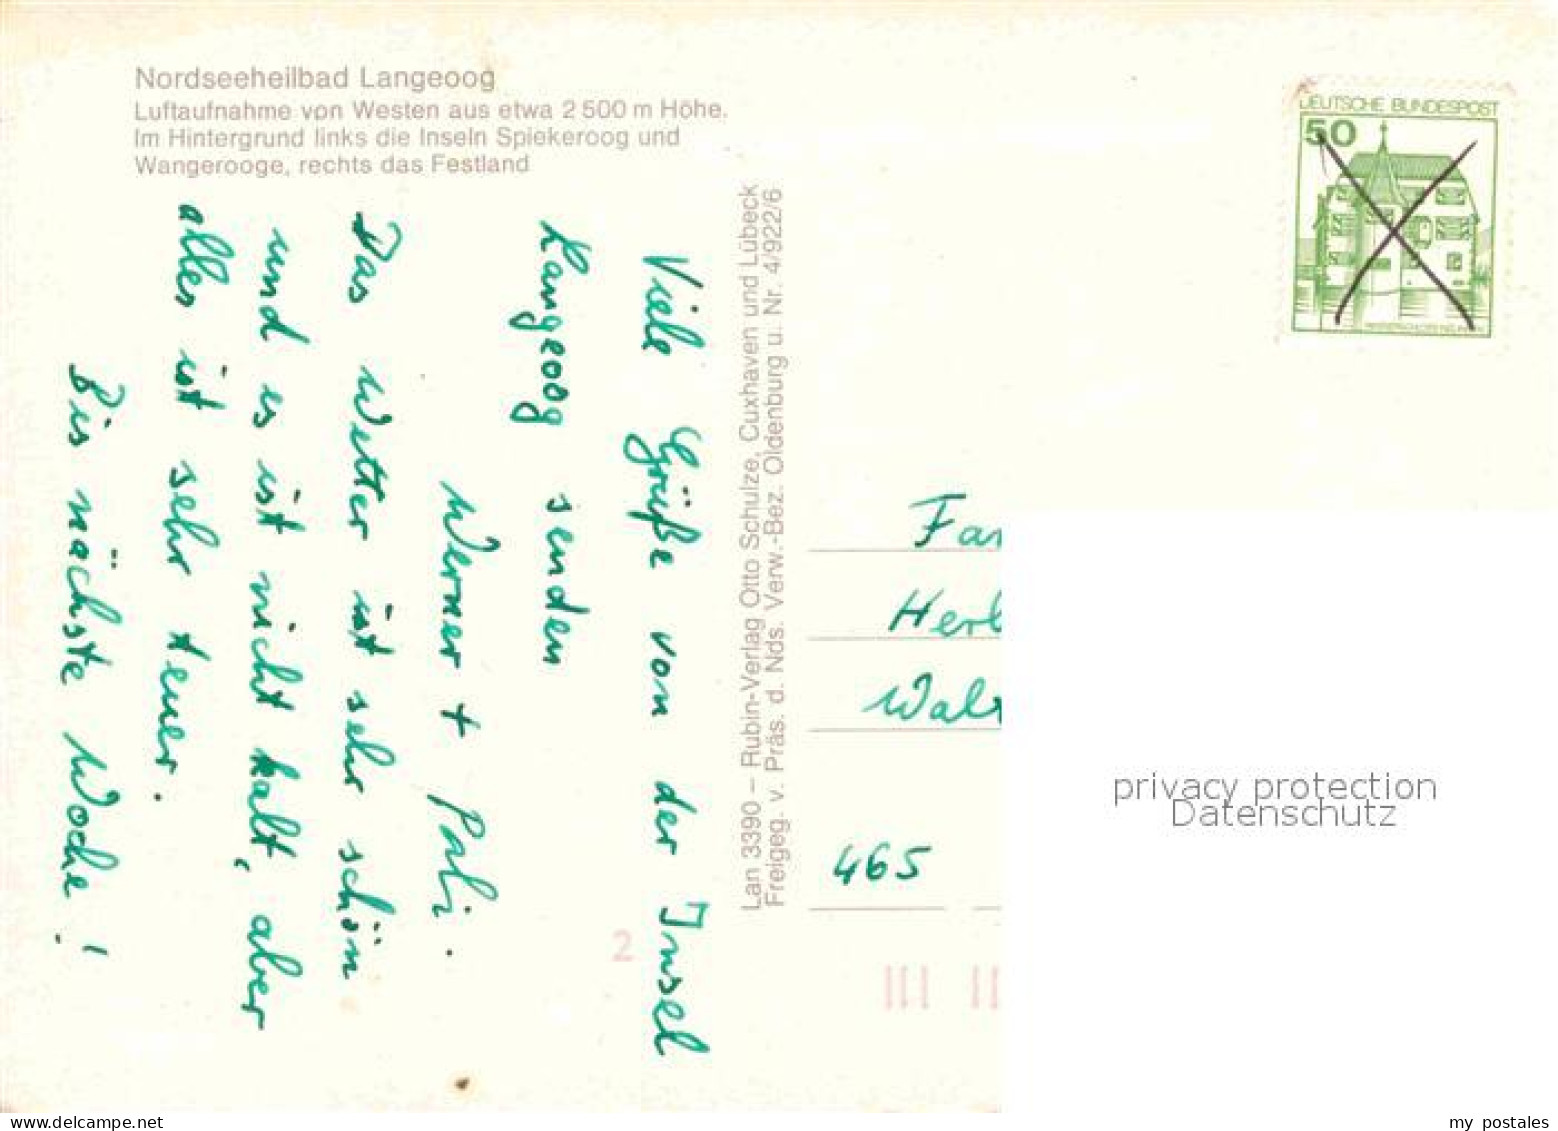 Nordseeheilbad Langeoog
Luftaufnahme von Westen aus etwa 2 500 m Höhe.
Im Hintergrund links die Inseln Spiekeroog und
Wangerooge, rechts das Festland
Viele Grüße von der Insel
Langeoog senden
Werner + Poli.
Das Wetter ist sehr schön
und es ist nicht kalt, aber
alles ist sehr teuer.
Bis nächste Woche!
Lan 3390 – Rubin-Verlag Otto Schulze, Cuxhaven und Lübeck
Freigeg. v. Präs. d. Nds. Verw.-Bez. Oldenburg u. Nr. 4/922/6
DEUTSCHE BUNDESPOST
50
Fam
Herb
Wal
465
2
privacy protection
Datenschutz
my postales